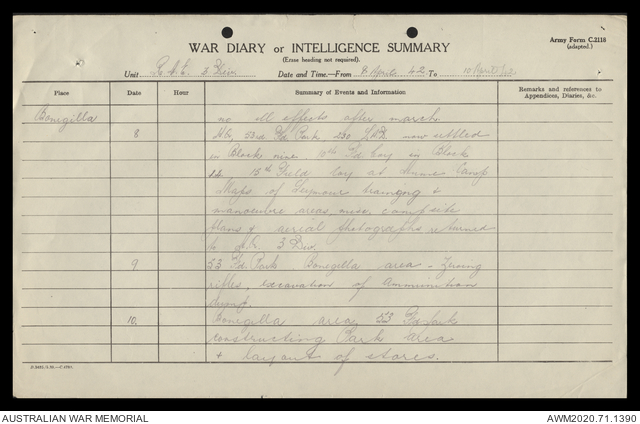 Army Form C.2118
(adapted.)
WAR DIARY or INTELLIGENCE SUMMARY
(Erase heading not required).
Unit R.A.E. 3 Div Date and Time—From April 42 To 10 April 42
Place Date Hour Summary of Events and Information Remarks and references to Appendices, Diaries, &c.
Bonegilla no ill effects after march.
8 HQ, 53rd Fd Park now settled
in Block nine. 10th Fd Coy in Block
14. 15th Field Coy at Hume Camp
Maps of Seymour training &
manoeuvre areas, camp site
plans & aerial photographs returned
to 3 Div.
9 53 Fd Park Bonegilla area - Zeroing
rifles, excavation of Ammunition
dump.
10. Bonegilla area 53 Fd Park
constructing Park area
& layout of stores.
AUSTRALIAN WAR MEMORIAL AWM2020.71.1390